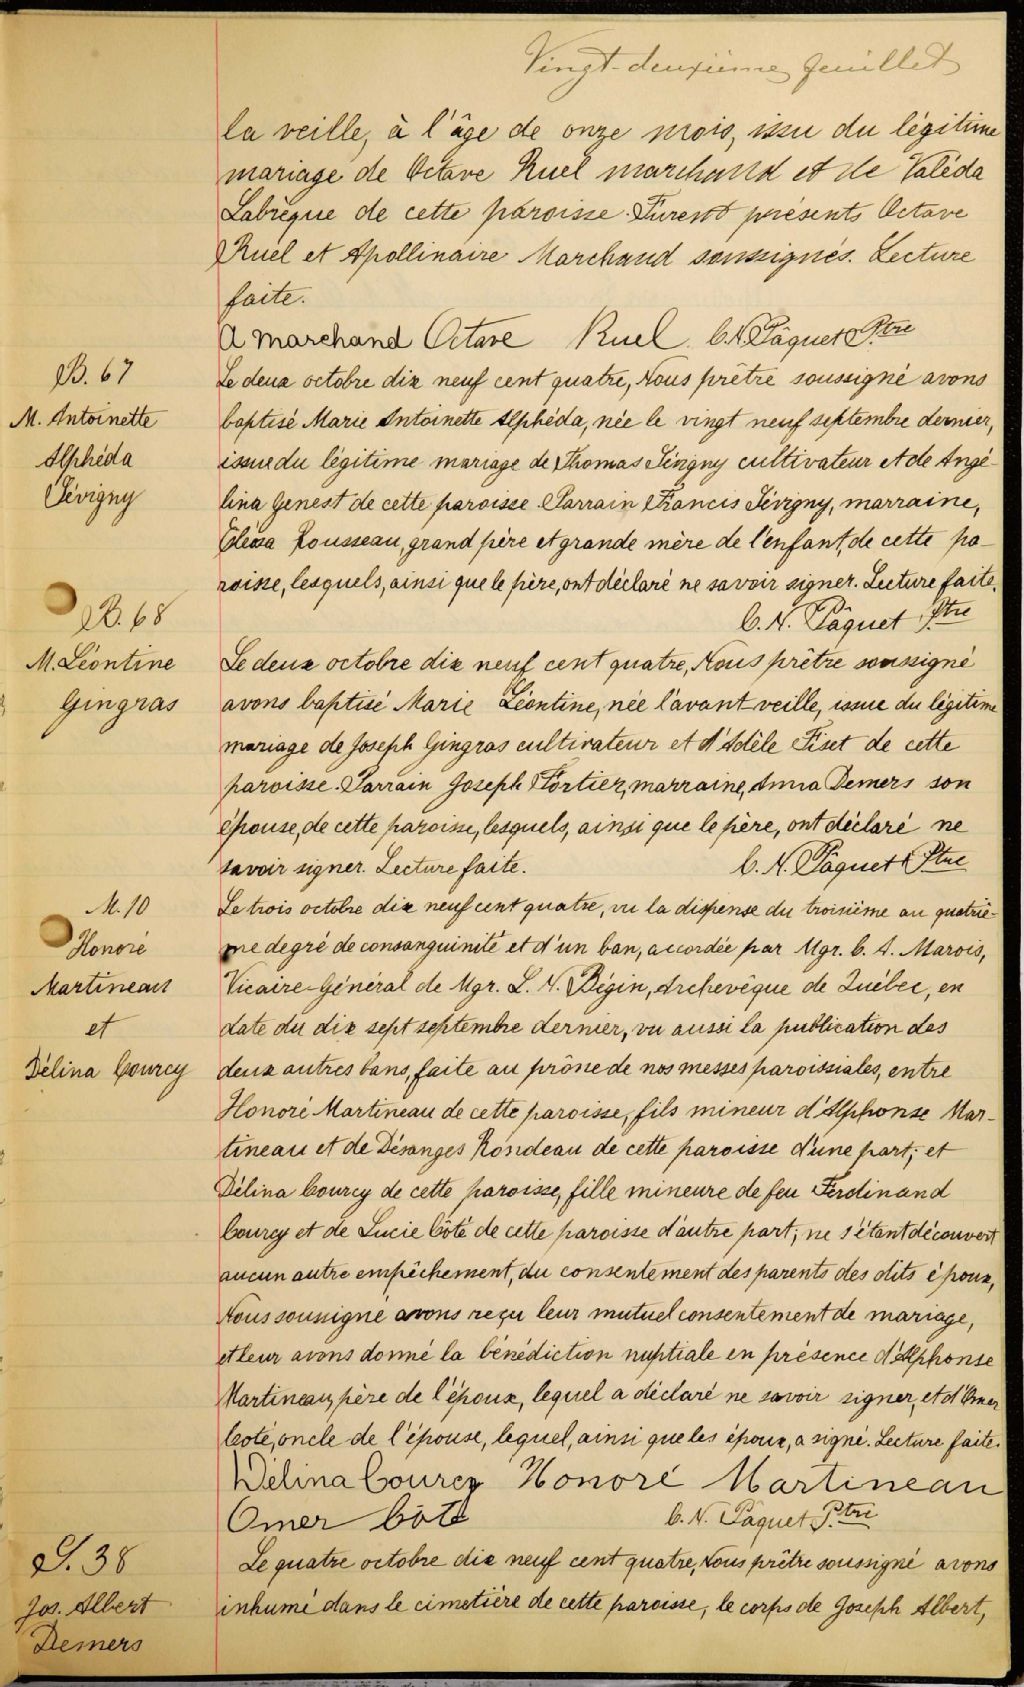 Vingt-deuxième feuillet
la veille, à l'âge de onze mois, issu du légitime
mariage de Octave Ruel marchand et de Valéda
Labrèque de cette paroisse. Furent présents Octave
Ruel et Apollinaire Marchand soussignés. Lecture
faite.
A Marchand Octave Ruel. C. N. Pâquet Ptre
B. 67
M. Antoinette
Alphéda
Sévigny
Le deux octobre dix neuf cent quatre, Nous prêtre soussigné avons
baptisé Marie Antoinette Alphéda, née le vingt neuf septembre dernier,
issue du légitime mariage de Thomas Sévigny cultivateur et de Angé-
lina Genest de cette paroisse. Parrain Francis Sévigny, marraine,
Rousseau, grand père et grande mère de l'enfant, de cette pa-
roisse, lesquels, ainsi que le père, ont déclaré ne savoir signer. Lecture faite.
C. N. Pâquet Ptre
B. 68
M. Léontine
Gingras
Le deux octobre dix neuf cent quatre, Nous prêtre soussigné
avons baptisé Marie Léontine, née l'avant-veille, issue du légitime
mariage de Joseph Gingras cultivateur et d'Adèle Fiset de cette
paroisse. Parrain Joseph Fortier, marraine, Anna Demers son
épouse, de cette paroisse, lesquels, ainsi que le père, ont déclaré ne
savoir signer. Lecture faite. C. N. Pâquet Ptre
M. 10
Honoré
Martineau
et
Délina Courcy
Le trois octobre dix neuf cent quatre, vu la dispense du troisième au quatriè-
me degré de consanguinité et d'un ban, accordée par Mgr. C. A. Marois,
Vicaire-Général de Mgr. L. N. Bégin, Archevêque de Québec, en
date du dix sept septembre dernier, vu aussi la publication des
deux autres bans, faite au prône de nos messes paroissiales, entre
Honoré Martineau de cette paroisse, fils mineur d'Alphonse Mar-
tineau et de Désanges Rondeau de cette paroisse d'une part; et
Délina Courcy de cette paroisse, fille mineure de feu Ferdinand
Courcy et de Lucie Côté de cette paroisse d'autre part; ne s'étant découvert
aucun autre empêchement, du consentement des parents des dits époux,
Nous soussigné avons reçu leur mutuel consentement de mariage,
et leur avons donné la bénédiction nuptiale en présence d'Alphonse
Martineau, père de l'époux, lequel a déclaré ne savoir signer, et d'Omer
Coté, oncle de l'épouse, lequel, ainsi que les époux, a signé. Lecture faite.
Délina Courcy Honoré Martineau
Omer Côté C. N. Pâquet Ptre
S. 38
Jos. Albert
Demers
Le quatre octobre dix neuf cent quatre, Nous prêtre soussigné avons
inhumé dans le cimetière de cette paroisse, le corps de Joseph Albert,